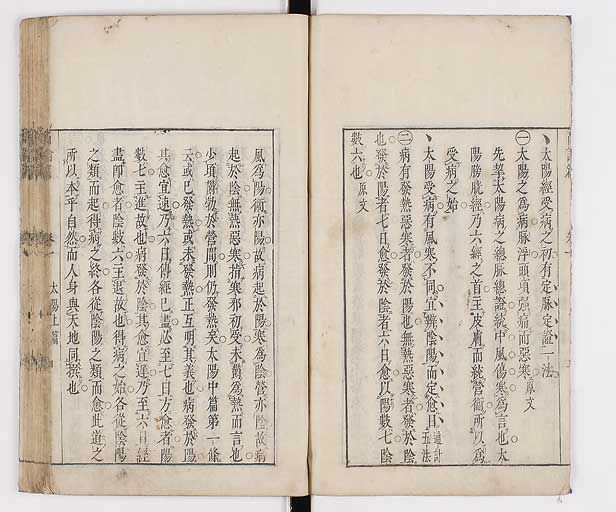 太陽經受病之初有定脉定證一法
㊀太陽之爲病脉浮頭項强痛而惡寒原文
先挈太陽病之總脉總證統中風傷寒爲言也太
陽膀胱經乃六經之首主皮膚而統營衞所以爲
受病之始
太陽受病有風寒不同宜辨陰陽而定愈日通計五法
㊁病有發熱惡寒者發於陽也無熱惡寒者發於陰
也發於陽者七日愈發於陰者六日愈以陽數七陰
數六也原文
風爲陽衞亦陽故病起於陽寒爲陰營亦陰故病
起於陰無熱惡寒指寒邪初受未欝爲熱而言也
少頃欝勃於營間則仍發熱矣太陽中篇第一條
云或已發熱或未發熱正互明其義也病發於陽
其愈宜速乃六日傳經已盡必至七日方愈者陽
數七主進故也病發於陰其愈宜遲乃至六日經
盡即愈者陰數六主退故也得病之始各從陰陽
之類而起得病之終各從陰陽之類而愈此道之
所以本乎自然而人身與天地同撰也
太陽上篇